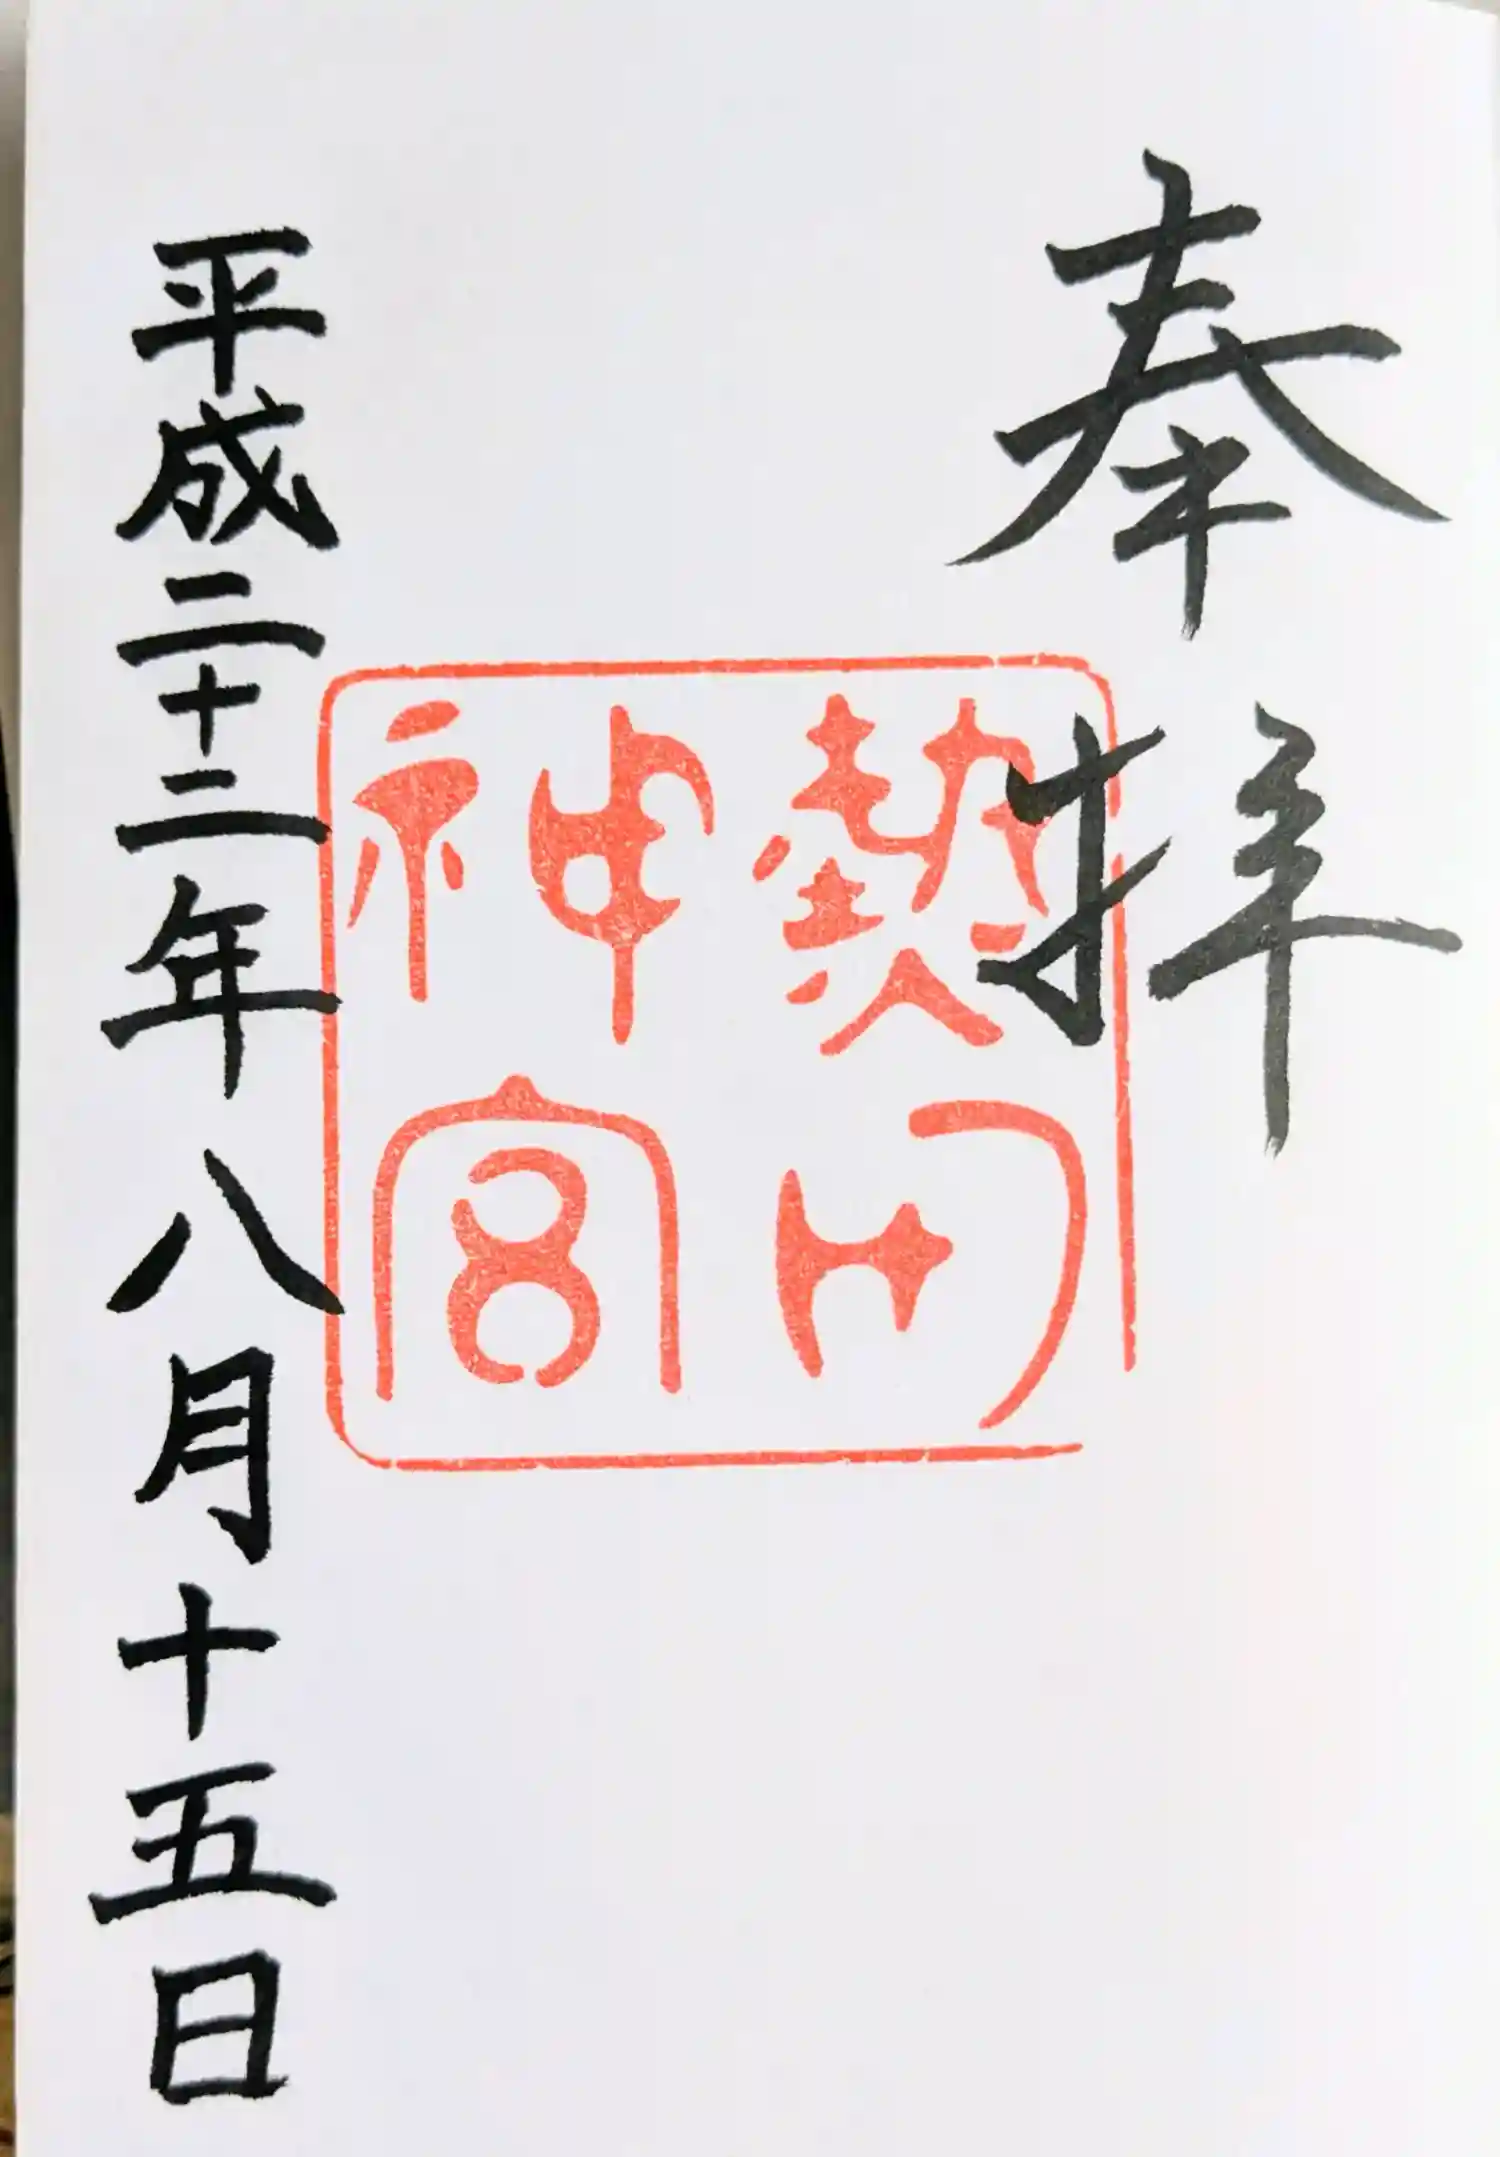 奉拝
熱田
神宮
平成二十二年八月十五日